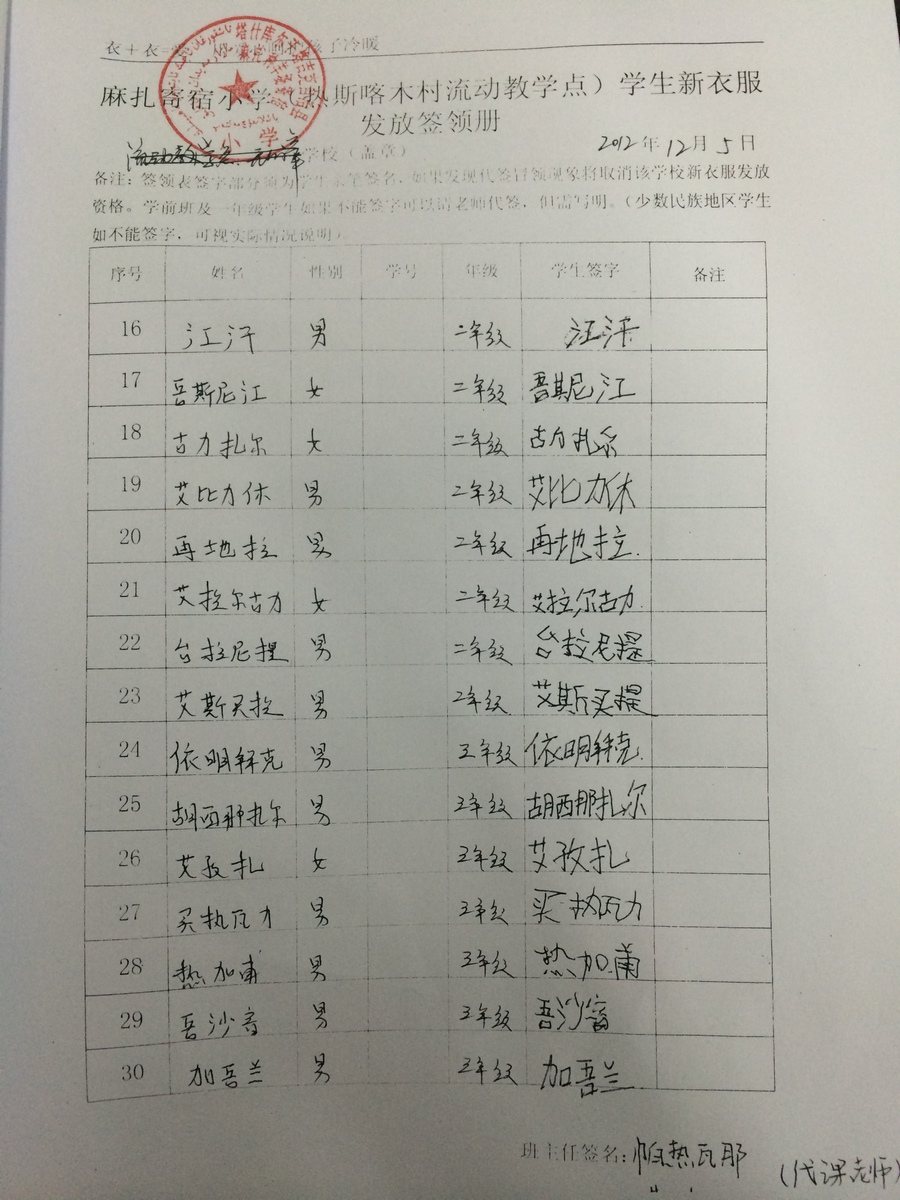 衣＋衣
子冷暖
麻扎寄宿小学（热斯喀木村流动教学点）学生新衣服
发放签领册
学校（盖章） 2012年12月5日
备注：签领表签字部分须为学生亲笔签名，如果发现代签冒领现象将取消该学校新衣服发放
资格。学前班及一年级学生如果不能签字可以请老师代签，但需写明。（少数民族地区学生
如不能签字，可视实际情况说明）
序号 姓名 性别 学号 年级 学生签字 备注
16 江汗 男 二年级 江汗
17 吾斯尼江 女 二年级 吾斯尼江
18 古力扎尔 女 二年级 古力扎尔
19 艾比力休 男 二年级 艾比力休
20 再地拉 男 二年级 再地拉
21 艾拉尔古力 女 二年级 艾拉尔古力
22 台拉尼提 男 二年级 台拉尼提
23 艾斯买拉 男 2年级 艾斯买提
24 依明拜克 男 三年级 依明拜克
25 胡西那扎尔 男 三年级 胡西那扎尔
26 艾孜扎 女 三年级 艾孜扎
27 买热瓦力 男 三年级 买热瓦力
28 热加甫 男 三年级 热加甫
29 吾沙音 男 三年级 吾沙音
30 加吾兰 男 三年级 加吾兰
班主任签名：帕热瓦那 （代课老师）